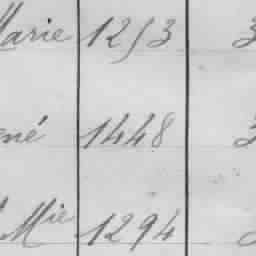 Marie 1253 3
ené 1448 3
Mie 1294